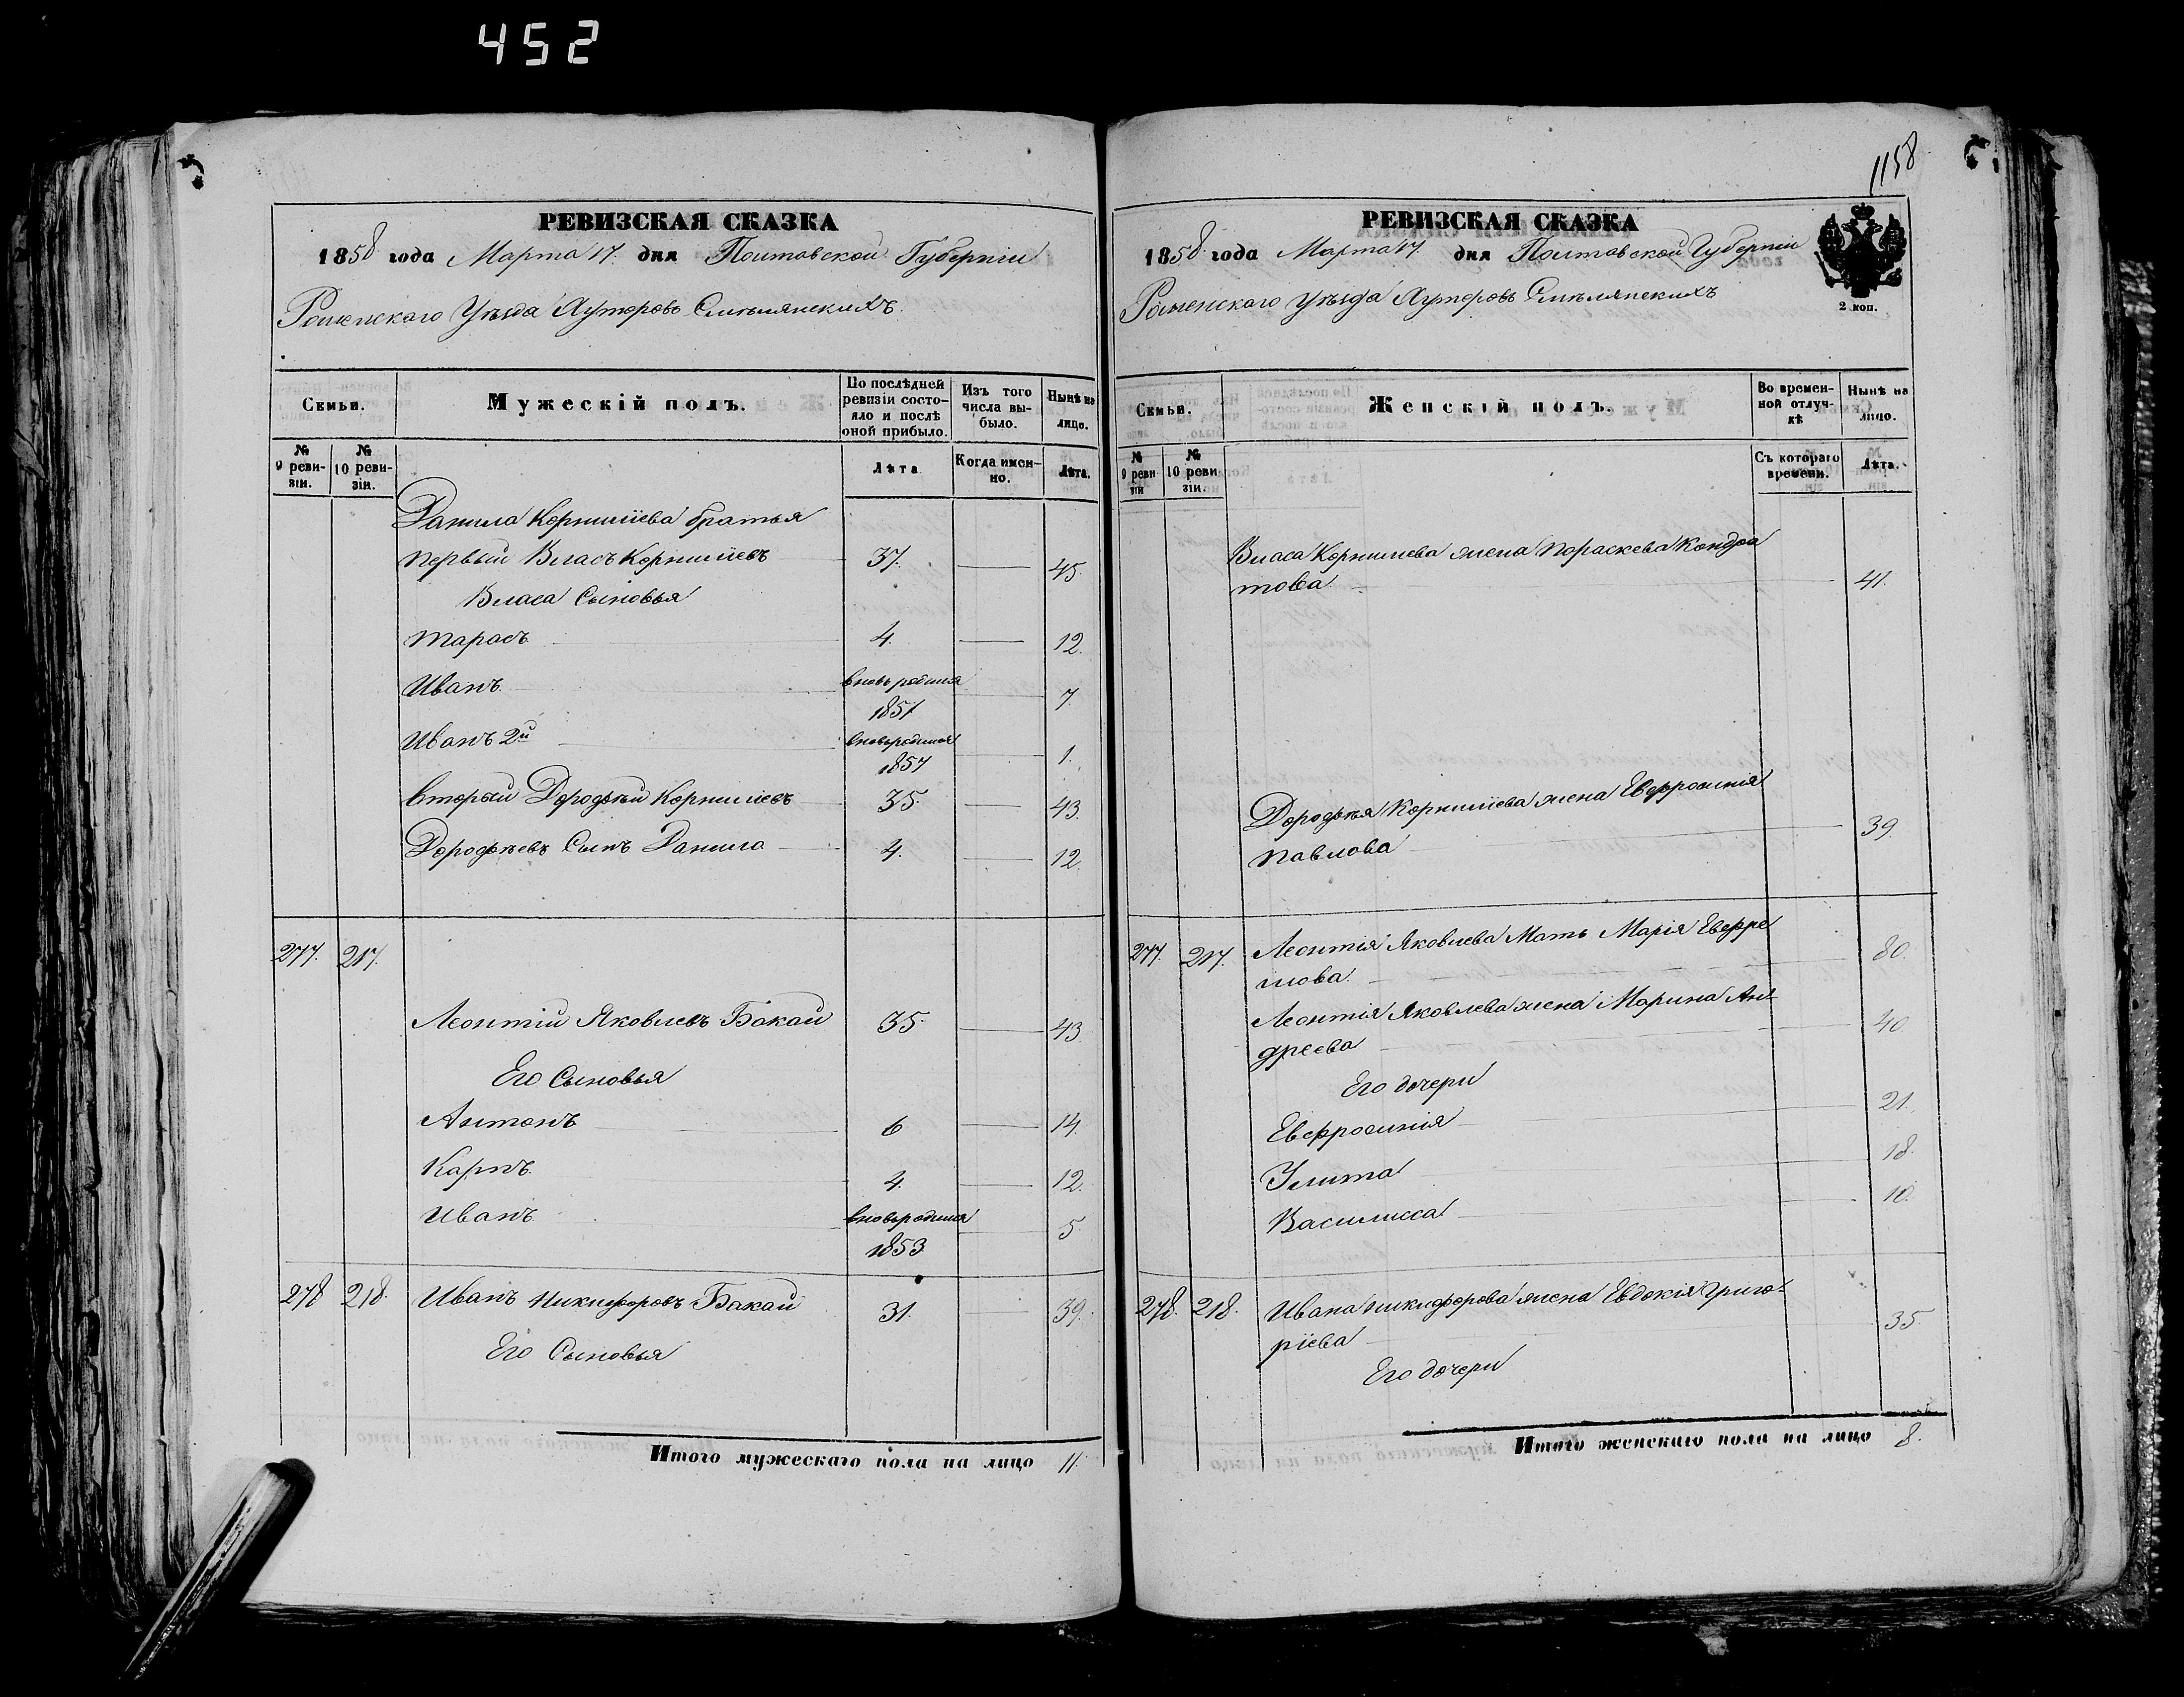 452
РЕВИЗСКАЯ СКАЗКА
1858 года Марта 17. дня Полтавской Губерніи
Роменскаго Уѣзда Хуторовъ Смѣлянскихъ.
Семьи.
Мужескій полъ.
По послѣдней ревизіи состояло и послѣ оной прибыло.
Изъ того числа выбыло.
Нынѣ на лицо.
№ 9 ревизіи.
№ 10 ревизіи.
Лѣта
Когда именно.
Лѣта.
Данила Корнилiева братья
первый Власъ Корнилiевъ 37. 45.
Власа Сыновья
Тарасъ 4. 12.
Иванъ вновь родился 1851 7.
Иванъ 2й вновь родился 1857 1.
вторый Дорофѣй Корнилiевъ 35. 43.
Дорофѣевъ Сынъ Данило 4. 12.
277. 217.
Леонтій Яковлевъ Бакай 35. 43.
Его Сыновья
Антонъ 6 14.
Карпъ 4. 12.
Иванъ вновь родился 1853 5.
278 218. Иванъ Никифоровъ Бакай 31. 39.
Его Сыновья
Итого мужескаго пола на лицо 11.
1158
РЕВИЗСКАЯ СКАЗКА
1858 года Марта 17. дня Полтавской Губерніи
Роменскаго Уѣзда Хуторовъ Смѣлянскихъ
2 коп.
Семьи.
Женскій полъ.
Во временной отлучкѣ
Нынѣ на лицо.
№ 9 ревизіи
№ 10 ревизіи.
Съ котораго времени.
Лѣта.
Власа Корнилiева жена Пораскева Кондра
това. 41.
Дорофѣя Корнилiева жена Евфросинія
Павлова 39.
277. 217. Леонтія Яковлева Мать Марія Евфре
мова. 80.
Леонтія Яковлева жена Марина Ан-
дреева 40.
Его дочери
Евфросинія 21.
Улита 18.
Василисса 10.
278. 218. Ивана Никифорова жена Евдокія Григо-
ріева 35.
Его дочери
Итого женскаго пола на лицо 8.